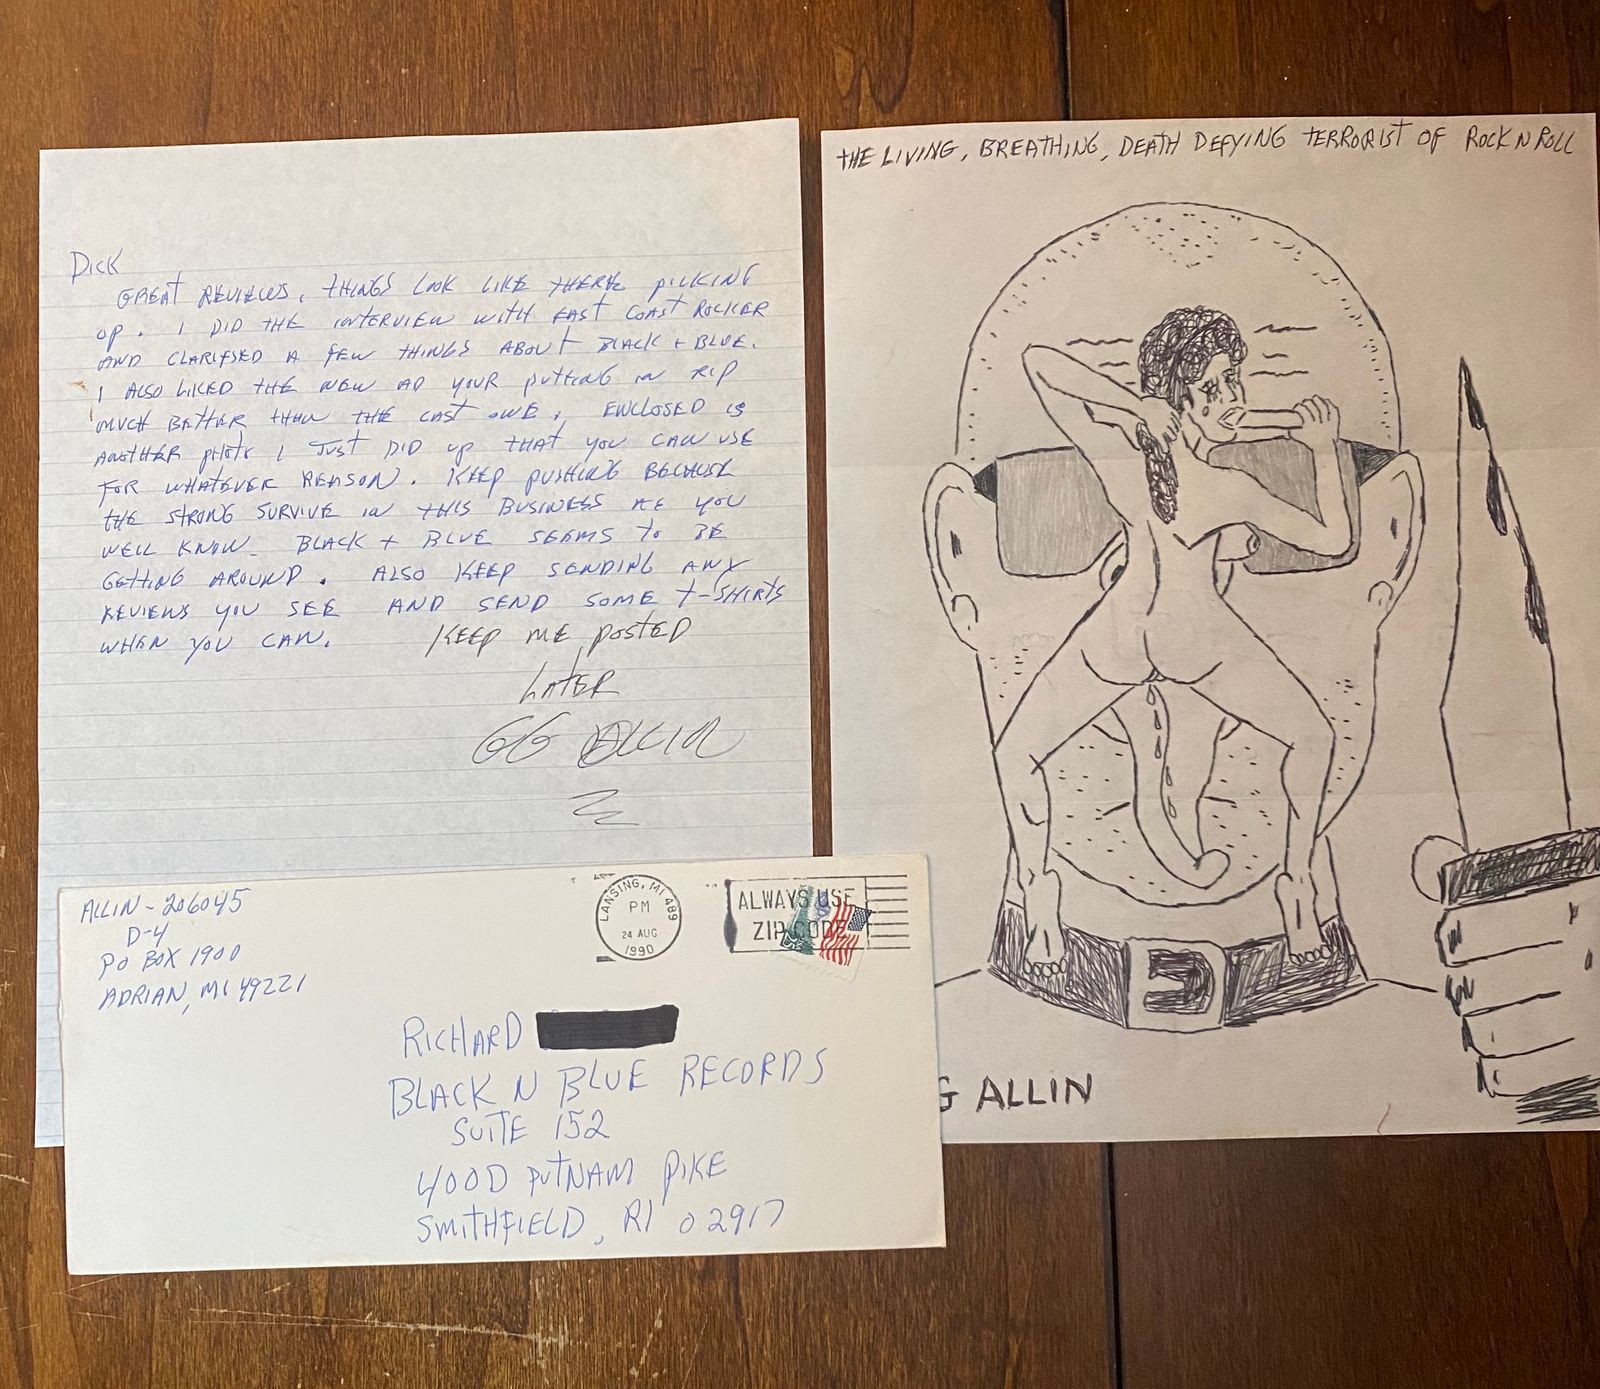 DICK
GREAT REVIEWS, THINGS LOOK LIKE THERE PICKING
UP. I DID THE INTERVIEW WITH EAST COAST ROCKER
AND CLARIFIED A FEW THINGS ABOUT BLACK + BLUE.
I ALSO LIKED THE NEW AD YOUR PUTTING IN RIP
MUCH BETTER THAN THE LAST ONE, ENCLOSED IS
ANOTHER PHOTO I JUST DID UP THAT YOU CAN USE
FOR WHATEVER REASON. KEEP PUSHING BECAUSE
THE STRONG SURVIVE IN THIS BUSINESS AS YOU
WELL KNOW. BLACK + BLUE SEEMS TO BE
GETTING AROUND. ALSO KEEP SENDING ANY
REVIEWS YOU SEE AND SEND SOME T-SHIRTS
WHEN YOU CAN. KEEP ME POSTED
LATER
GG ALLIN
THE LIVING, BREATHING, DEATH DEFYING TERRORIST OF ROCK N ROLL
G ALLIN
ALLIN - 206045
D-4
PO BOX 1900
ADRIAN, MI 49221
LANSING, MI 489
PM
24 AUG
1990
ALWAYS USE
ZIP CODE
RICHARD
BLACK N BLUE RECORDS
SUITE 152
400D PUTNAM PIKE
SMITHFIELD, RI 02917